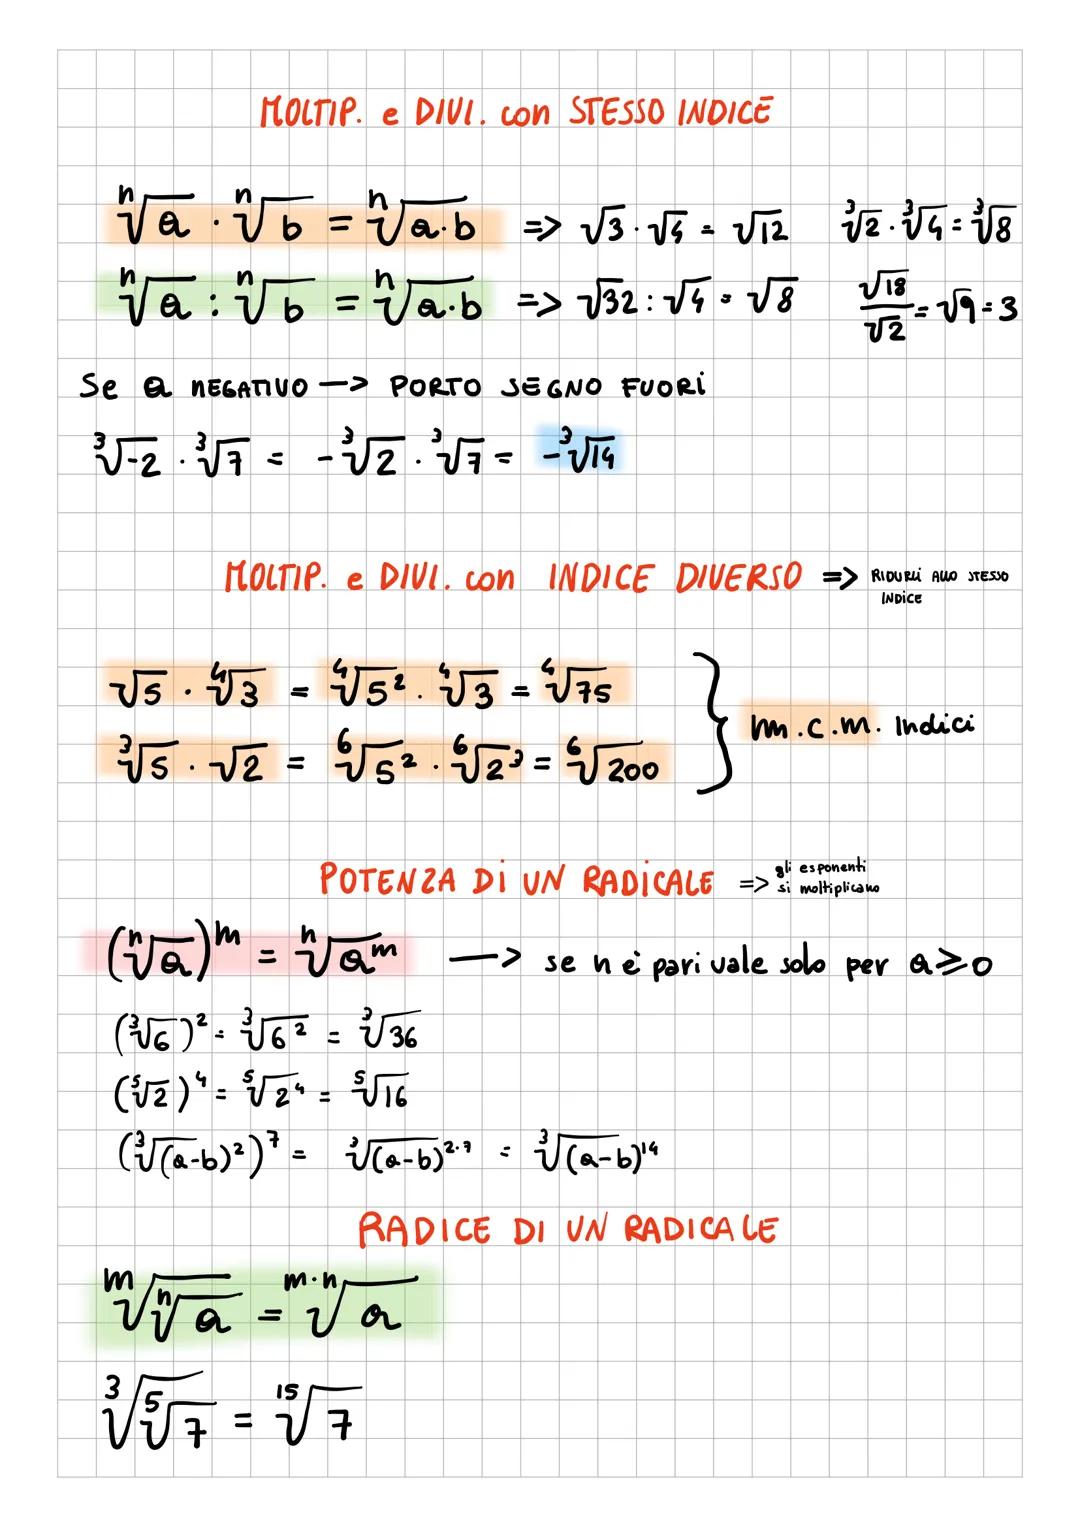 MOLTIP. e DIVI. con STESSO INDICE
ⁿ√a · ⁿ√b = ⁿ√a·b => √3 · √4 = √12 ³√2 · ³√4 = ³√8
ⁿ√a : ⁿ√b = ⁿ√a·b => √32 : √4 = √8 √18/√2 = √9 = 3
Se a NEGATIVO —> PORTO SEGNO FUORi
³√-2 · ³√7 = -³√2 · ³√7 = -³√14
MOLTIP. e DIVI. con INDICE DIVERSO => RIDURLi ALLO STESSO
INDiCE
√5 · ⁴√3 = ⁴√5² · ⁴√3 = ⁴√75
³√5 · √2 = ⁶√5² · ⁶√2³ = ⁶√200
} m.c.m. Indici
POTENZA Di UN RADiCALE => gli esponenti
si moltiplicano
(ⁿ√a)ᵐ = ⁿ√aᵐ —> se n è pari vale solo per a⩾0
(³√6)² = ³√6² = ³√36
(⁵√2)⁴ = ⁵√2⁴ = ⁵√16
(³√(a-b)²)⁷ = ³√(a-b)²·⁷ = ³√(a-b)¹⁴
RADICE DI UN RADICALE
ᵐ√ⁿ√a = ᵐ·ⁿ√a
³√⁵√7 = ¹⁵√7